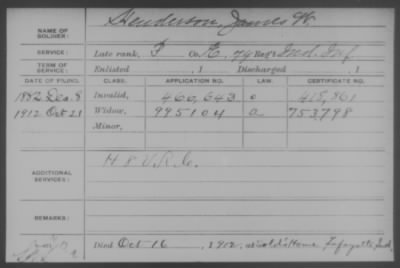 Henderson, James W.
NAME OF SOLDIER:
SERVICE: Late rank, P Co. E, 74 Reg't Ind. Inf.
TERM OF SERVICE: Enlisted , 1 Discharged , 1
DATE OF FILING. CLASS. APPLICATION NO. LAW. CERTIFICATE NO.
1882 Dec. 8 Invalid, 466,643
1912 Oct 21 Widow, 995104 a 753798
Minor,
ADDITIONAL SERVICES: H 8 V.R.C.
REMARKS:
Died Oct 16, 1912, at Sold's Home Lafayette, Ind.